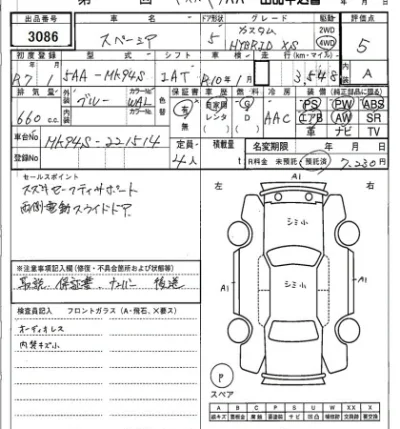 出品番号 車名 ドア形状 グレード 駆動 評価点
3086 スペーシア 5 カスタム HYBRID XS 2WD 4WD 5
初度登録 型式 シフト 車検 走行(km・マイル) 内装 A
R7年1月 5AA-MK94S- IAT R10年1月 3,548
排気量 外装 ブルー カラーNo. WAL 色替 保証書 車歴 燃料 冷房 装備(純正部品に限る)
660 c.c. 内装 カラーNo. 有 無 自家用 レンタ G D AAC PS PW ABS
エアB AW SR
革 ナビ TV
車台No. MK94S-221514 定員 4人 積載量 t 名変期限 年 月 日
登録No. R料金 未預託 預託済 7,230円
セールスポイント
スズキセーフティサポート
両側電動スライドドア
左 A1 右
シミ小
シミ小
A1 A1
※注意事項記入欄(修復・不具合箇所および状態等)
取説、保証書、ナンバー 後送
検査員記入 フロントガラス(A・飛石、×要ス)
オーディオレス
内装キズ小
P
スペア
A B C P S U W X XX